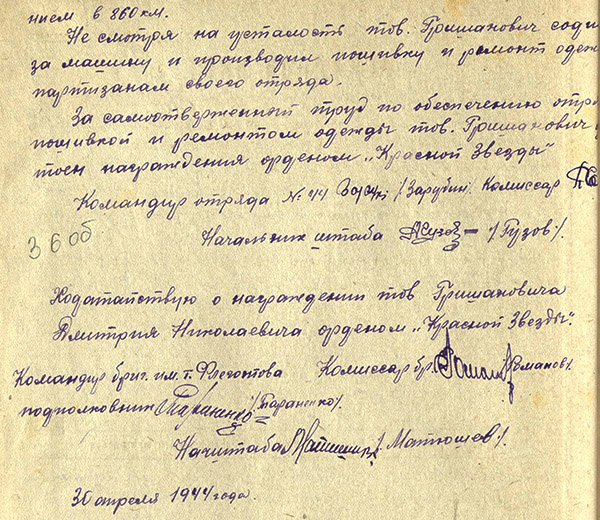 нием в 860 км.
Не смотря на усталость тов. Гришанович
за машину и производил пошивку и ремонт
партизанам своего отряда.
За самоотверженный труд по обеспечению
пошивкой и ремонтом одежды тов. Гришанович
тоен награждения орденом "Красной Звезды"
Командир отряда № 44 /Зарубин/. Комиссар
360б
Начальник штаба /Гузов/.
Ходатайствую о награждении тов Гришановича
Дмитрия Николаевича орденом "Красной Звезды".
Командир бриг. им. т. Флегонтова Комиссар бр. /Романов/
подполковник /Тараненко/.
Начштаба /Матюшев/.
30 апреля 1944 года.